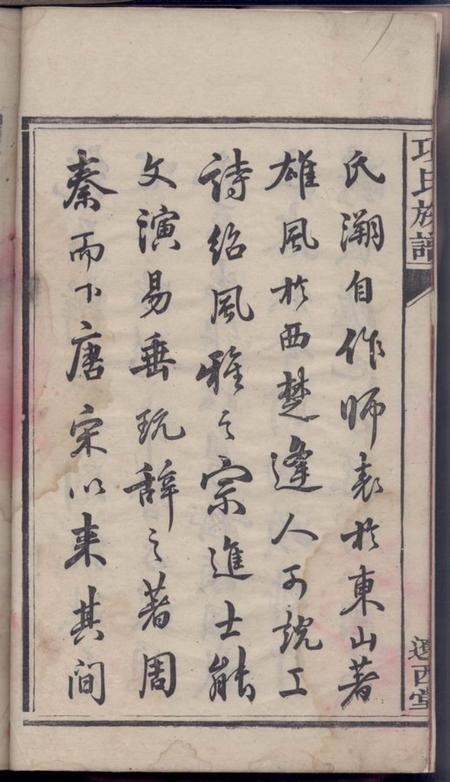 項氏族譜
遼西堂
氏溯自作師表於東山著
雄風於西楚逢人可說工
詩紹風雅之宗進士能
文演易垂玩辭之著周
秦而下唐宋以来其间